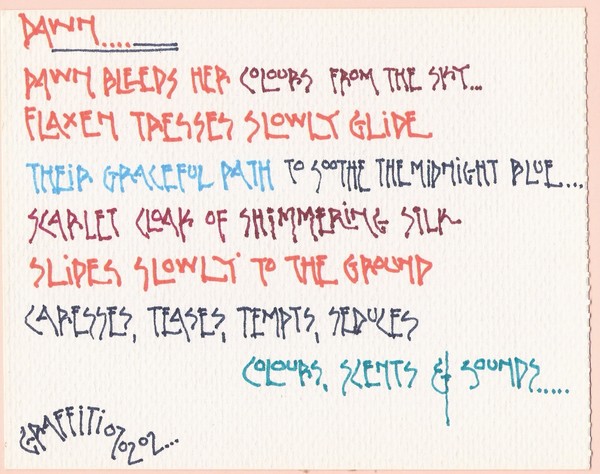 DAWN....
DAWN BLEEDS HER COLOURS FROM THE SKY...
FLAXEN TRESSES SLOWLY GLIDE
THEIR GRACEFUL PATH TO SOOTHE THE MIDNIGHT BLUE....
SCARLET CLOAK OF SHIMMERING SILK
SLIDES SLOWLY TO THE GROUND
CARESSES, TEASES, TEMPTS, SEDUCES
COLOURS, SCENTS & SOUNDS.....
GRAFFITI 070202...